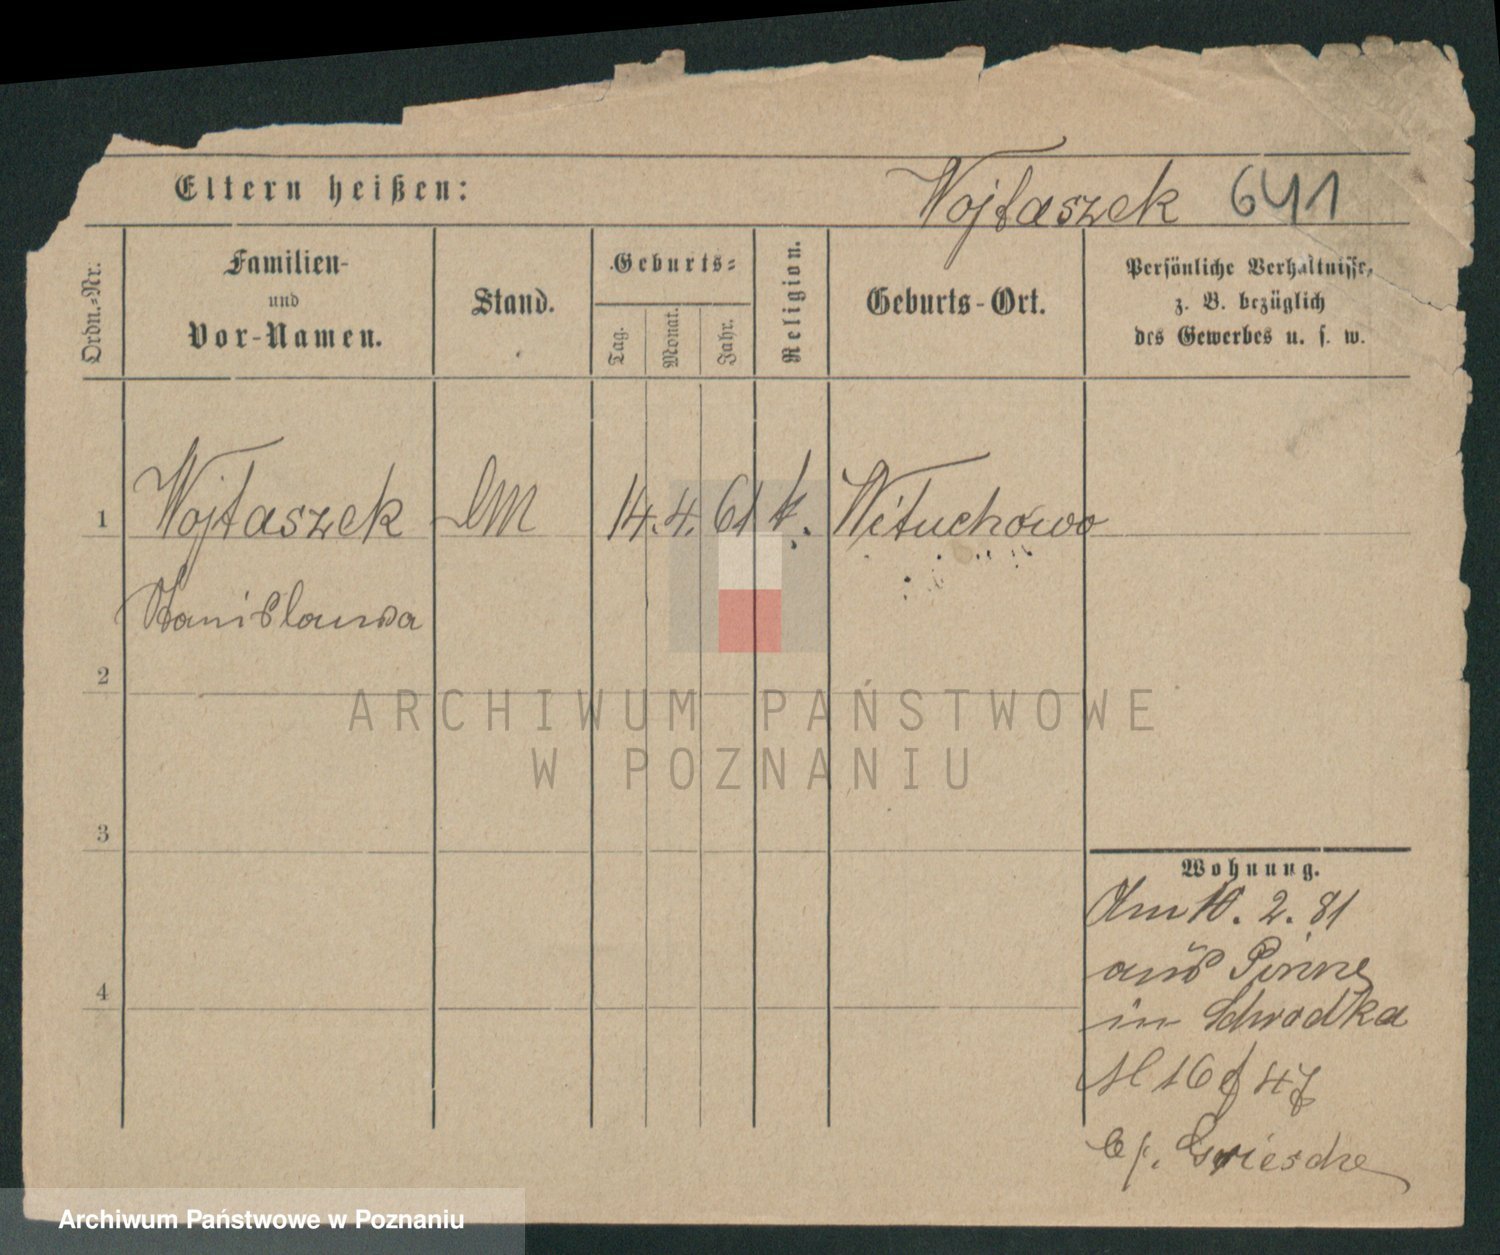 Eltern heißen:
Wojtaszek 641
Ordn.-Nr.
Familien-
und
Vor-Namen.
Stand.
Geburts-
Tag.
Monat.
Jahr.
Religion.
Geburts-Ort.
Persönliche Verhältnisse,
z. B. bezüglich
des Gewerbes u. s. w.
1 Wojtaszek DM 14. 4. 61 k. Wituchowo
Stanislawa
2
ARCHIWUM PAŃSTWOWE
W POZNANIU
3
4
Wohnung.
Am 10. 2. 81
aus Pinne
in Schrodka
N 16
Archiwum Państwowe w Poznaniu